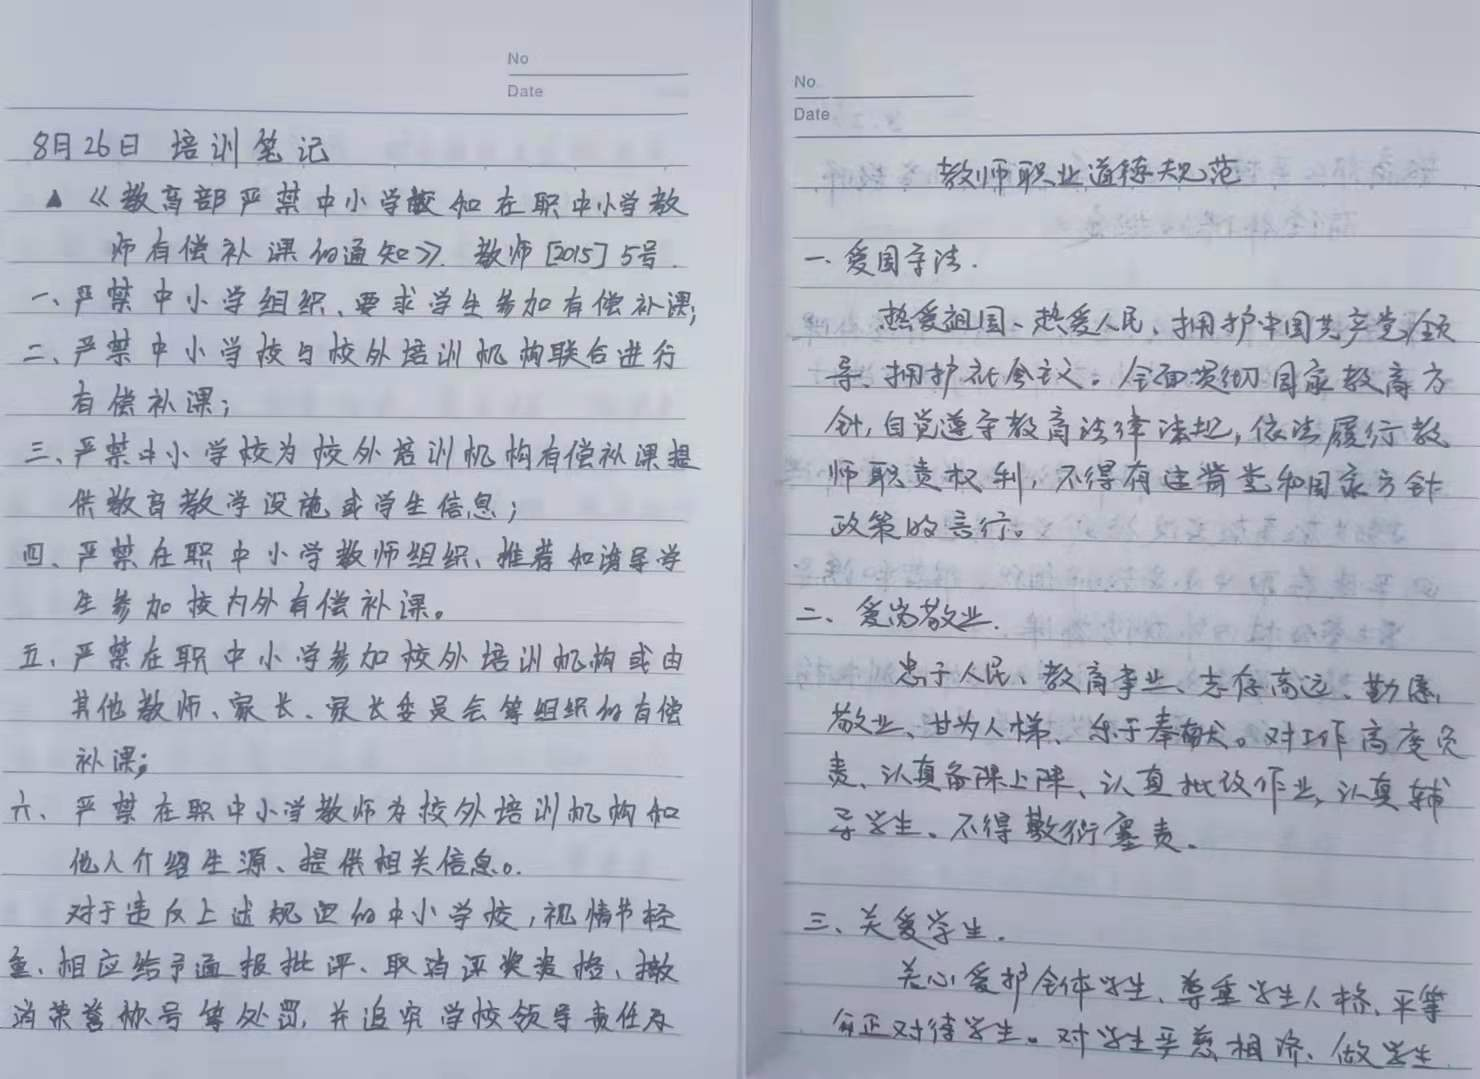 No
Date
8月26日 培训笔记
▲《教育部严禁中小学校和在职中小学教
师有偿补课的通知》. 教师[2015]5号.
一、严禁中小学组织、要求学生参加有偿补课;
二、严禁中小学校与校外培训机构联合进行
有偿补课;
三、严禁中小学校为校外培训机构有偿补课提
供教育教学设施或学生信息;
四、严禁在职中小学教师组织、推荐和诱导学
生参加校内外有偿补课。
五、严禁在职中小学参加校外培训机构或由
其他教师、家长、家长委员会等组织的有偿
补课;
六、严禁在职中小学教师为校外培训机构和
他人介绍生源、提供相关信息。
对于违反上述规定的中小学校,视情节轻
重、相应给予通报批评、取消评奖资格、撤
消荣誉称号等处罚,并追究学校领导责任及
No
Date
教师职业道德规范
一.爱国守法.
热爱祖国、热爱人民、拥护中国共产党领
导、拥护社会主义。全面贯彻国家教育方
针,自觉遵守教育法律法规,依法履行教
师职责权利,不得有违背党和国家方针
政策的言行。
二、爱岗敬业.
忠于人民、教育事业、志存高远、勤恳
敬业、甘为人梯、乐于奉献。对工作高度负
责、认真备课上课、认真批改作业,认真辅
导学生、不得敷衍塞责。
三、关爱学生.
关心爱护全体学生、尊重学生人格、平等
公正对待学生。对学生严慈相济、做学生